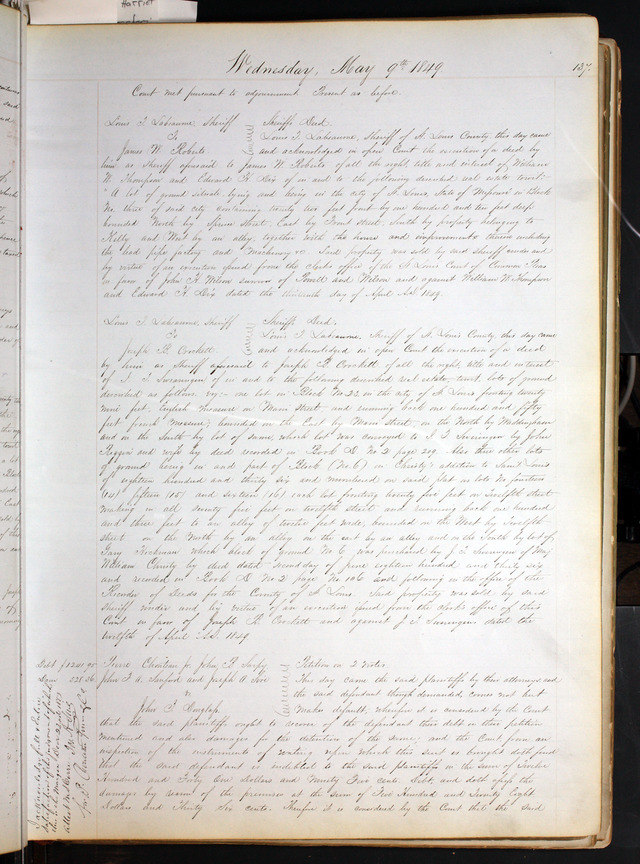 Harriet
Wednesday, May 9th 1849
137.
Court met pursuant to adjournment Present as before
Louis T. Labeaume, Sheriff
To
James W. Roberts
Sheriffs Deed.
Louis T. Labeaume, Sheriff of St. Louis County this day came
and acknowledged in open Court the execution of a deed by
him as Sheriff aforesaid to James W. Roberts of all the right title and interest of William
W Thompson and Edward K Dix of in and to the following described real estate towit:
"A lot of ground situate lying and being in the city of St Louis, State of Missouri in Block
No. three of said city containing twenty two feet front by one hundred and ten feet deep
bounded North by Spruce Street, East by Front street, South by property belonging to
Kelly and West by an alley, together with the house and improvements thereon including
the lead pipe factory and Machinery &c Said property was sold by said Sheriff under and
by virtue of an execution issued from the clerks office of the St Louis Court of Common Pleas
in favor of John A. Wilson survivor of Powell and Wilson and against William W. Thompson
and Edward K. Dix dated the thirteenth day of April A.D. 1849.
Louis T. Labeaume, Sheriff
To
Joseph B. Crockett.
Sheriffs Deed.
Louis T. Labeaume, Sheriff of St. Louis County, this day came
and acknowledged in open Court the execution of a deed
by him as Sheriff aforesaid to Joseph B. Crockett of all the right, title and interest
of in and to the following described real estate, towit, lots of ground
described as follows viz:- one lot in Block No 22 in the city of St Louis fronting twenty
nine feet, english measure on Main Street and running back one hundred and fifty
feet french measure; bounded on the East by Main Street on the North by
and on the South by lot of same, which lot was conveyed to by John
Riggin and wife by deed recorded in Book S. No 2 page 209. Also three other lots
of ground being in and part of Block (No. 6) in Christy's addition to Saint Louis
of eighteen hundred and thirty six and numbered on said plat as lots No fourteen
(14) fifteen (15) and sixteen (16) each lot fronting twenty five feet on twelfth street
making in all seventy five feet on twelfth street and running back one hundred
and three feet to an alley of twelve feet wide, bounded on the West by twelfth
street on the North by an alley on the east by an alley and on the South by lot of
which block of ground No 6 was purchased by of
William Christy by deed dated second day of June eighteen hundred and thirty six
and recorded in Book S. No. 2 page No. 106 and following in the office of the
Recorder of Deeds for the County of St Louis. Said property was sold by said
Sheriff under and by virtue of an execution issued from the clerks office of this
Court in favor of Joseph B. Crockett and against dated the
twelfth of April A.D. 1849.
Debt $1241.95
Dam 528.36
Pierre Chouteau Jr. John B. Sarpy
John F. A. Sanford and Joseph A. Sire
v.
John F. Dunlap.
Petition in 2 Notes.
This day came the said plaintiffs by their attorneys and
the said defendant though demanded comes not but
makes default, wherefore it is considered by the Court
that the said plaintiffs ought to recover of the defendant their debt in their petition
mentioned and also damages for the detention of the same; and the Court from an
inspection of the instruments of writing upon which this suit is brought doth find
that the said defendant is indebted to the said plaintiffs in the sum of Twelve
Hundred and Forty One Dollars and Ninety Five cents. Debt, and doth assess the
damages by reason of the premises at the sum of Five Hundred and Twenty Eight
Dollars and Thirty Six cents. Therefore it is considered by the Court that the said